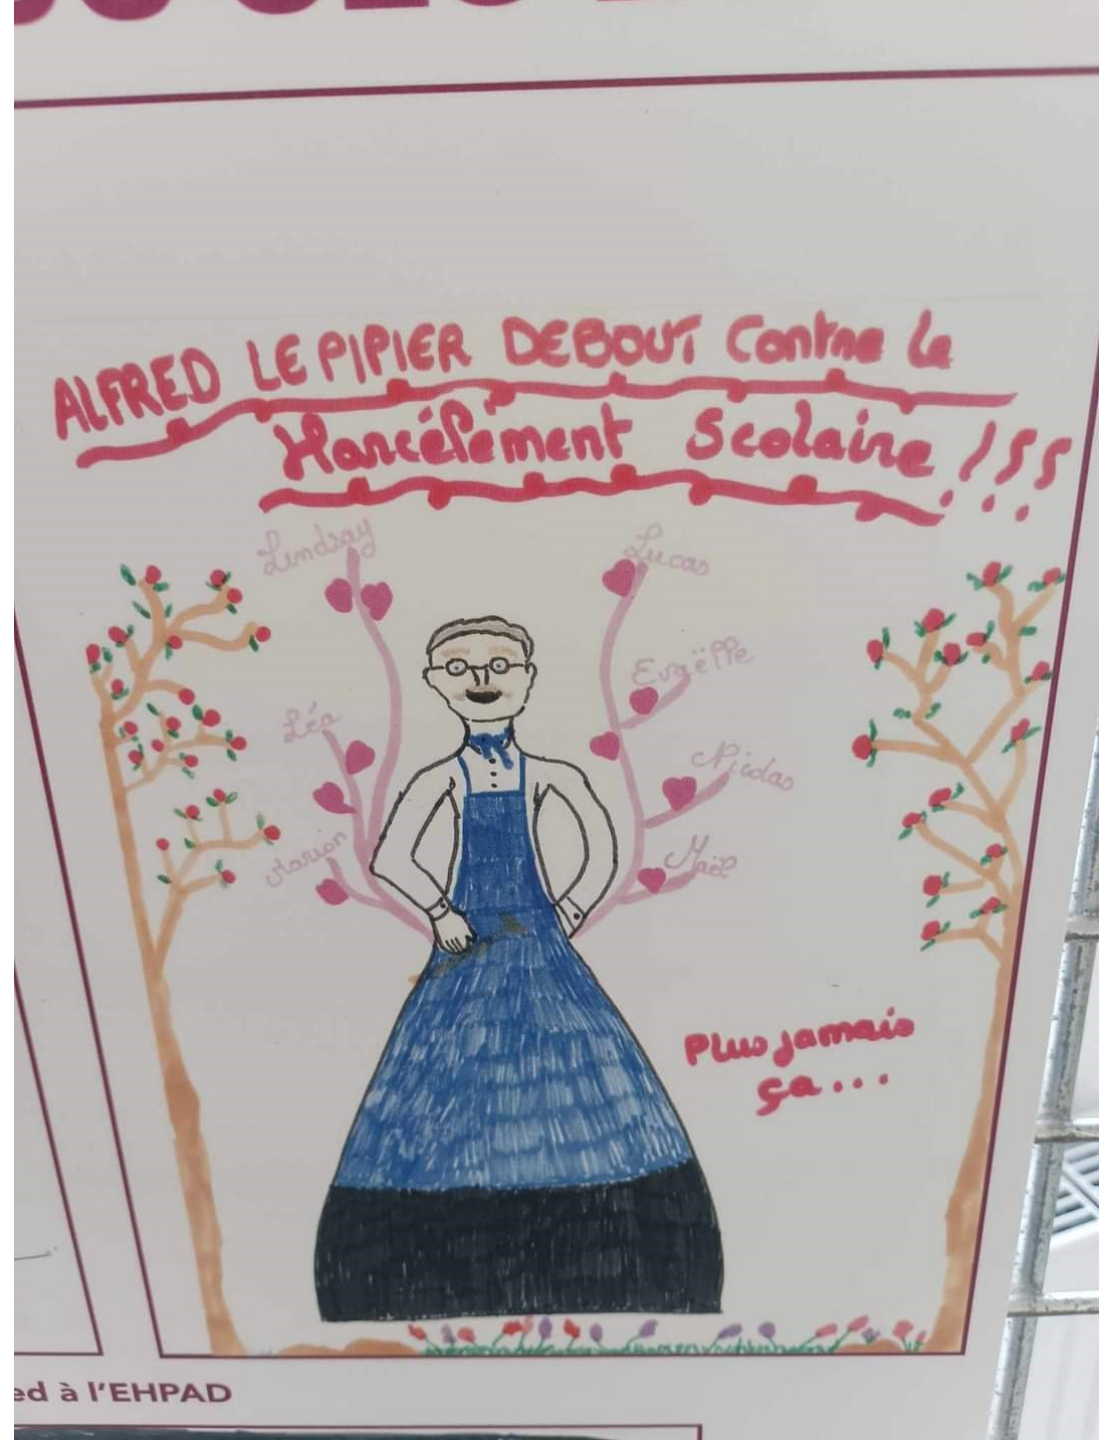 ALFRED LE PIPIER DEBOUT Contre le
Harcélèment Scolaire !!!
Lindsay
Lucas
Evaëlle
Léa
Nicolas
Marion
Maël
Plus jamais
ça...
ed à l'EHPAD